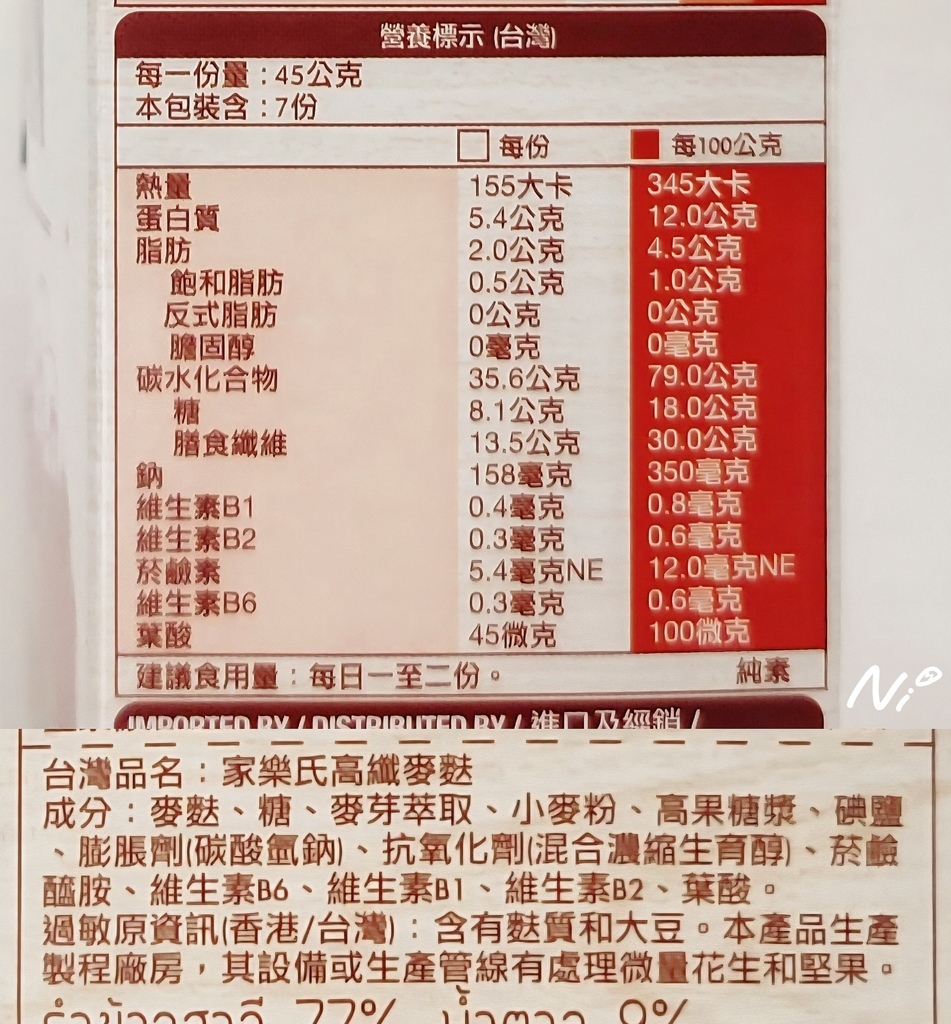 營養標示 (台灣)
每一份量：45公克
本包裝含：7份
每份 每100公克
熱量 155大卡 345大卡
蛋白質 5.4公克 12.0公克
脂肪 2.0公克 4.5公克
飽和脂肪 0.5公克 1.0公克
反式脂肪 0公克 0公克
膽固醇 0毫克 0毫克
碳水化合物 35.6公克 79.0公克
糖 8.1公克 18.0公克
膳食纖維 13.5公克 30.0公克
鈉 158毫克 350毫克
維生素B1 0.4毫克 0.8毫克
維生素B2 0.3毫克 0.6毫克
菸鹼素 5.4毫克NE 12.0毫克NE
維生素B6 0.3毫克 0.6毫克
葉酸 45微克 100微克
建議食用量：每日一至二份。 純素
Ni
IMPORTED BY / DISTRIBUTED BY / 進口及經銷 /
台灣品名：家樂氏高纖麥麩
成分：麥麩、糖、麥芽萃取、小麥粉、高果糖漿、碘鹽
、膨脹劑(碳酸氫鈉)、抗氧化劑(混合濃縮生育醇)、菸鹼
醯胺、維生素B6、維生素B1、維生素B2、葉酸。
過敏原資訊(香港/台灣)：含有麩質和大豆。本產品生產
製程廠房，其設備或生產管線有處理微量花生和堅果。
รำข้าวสาลี 77% น้ำตาล 9%